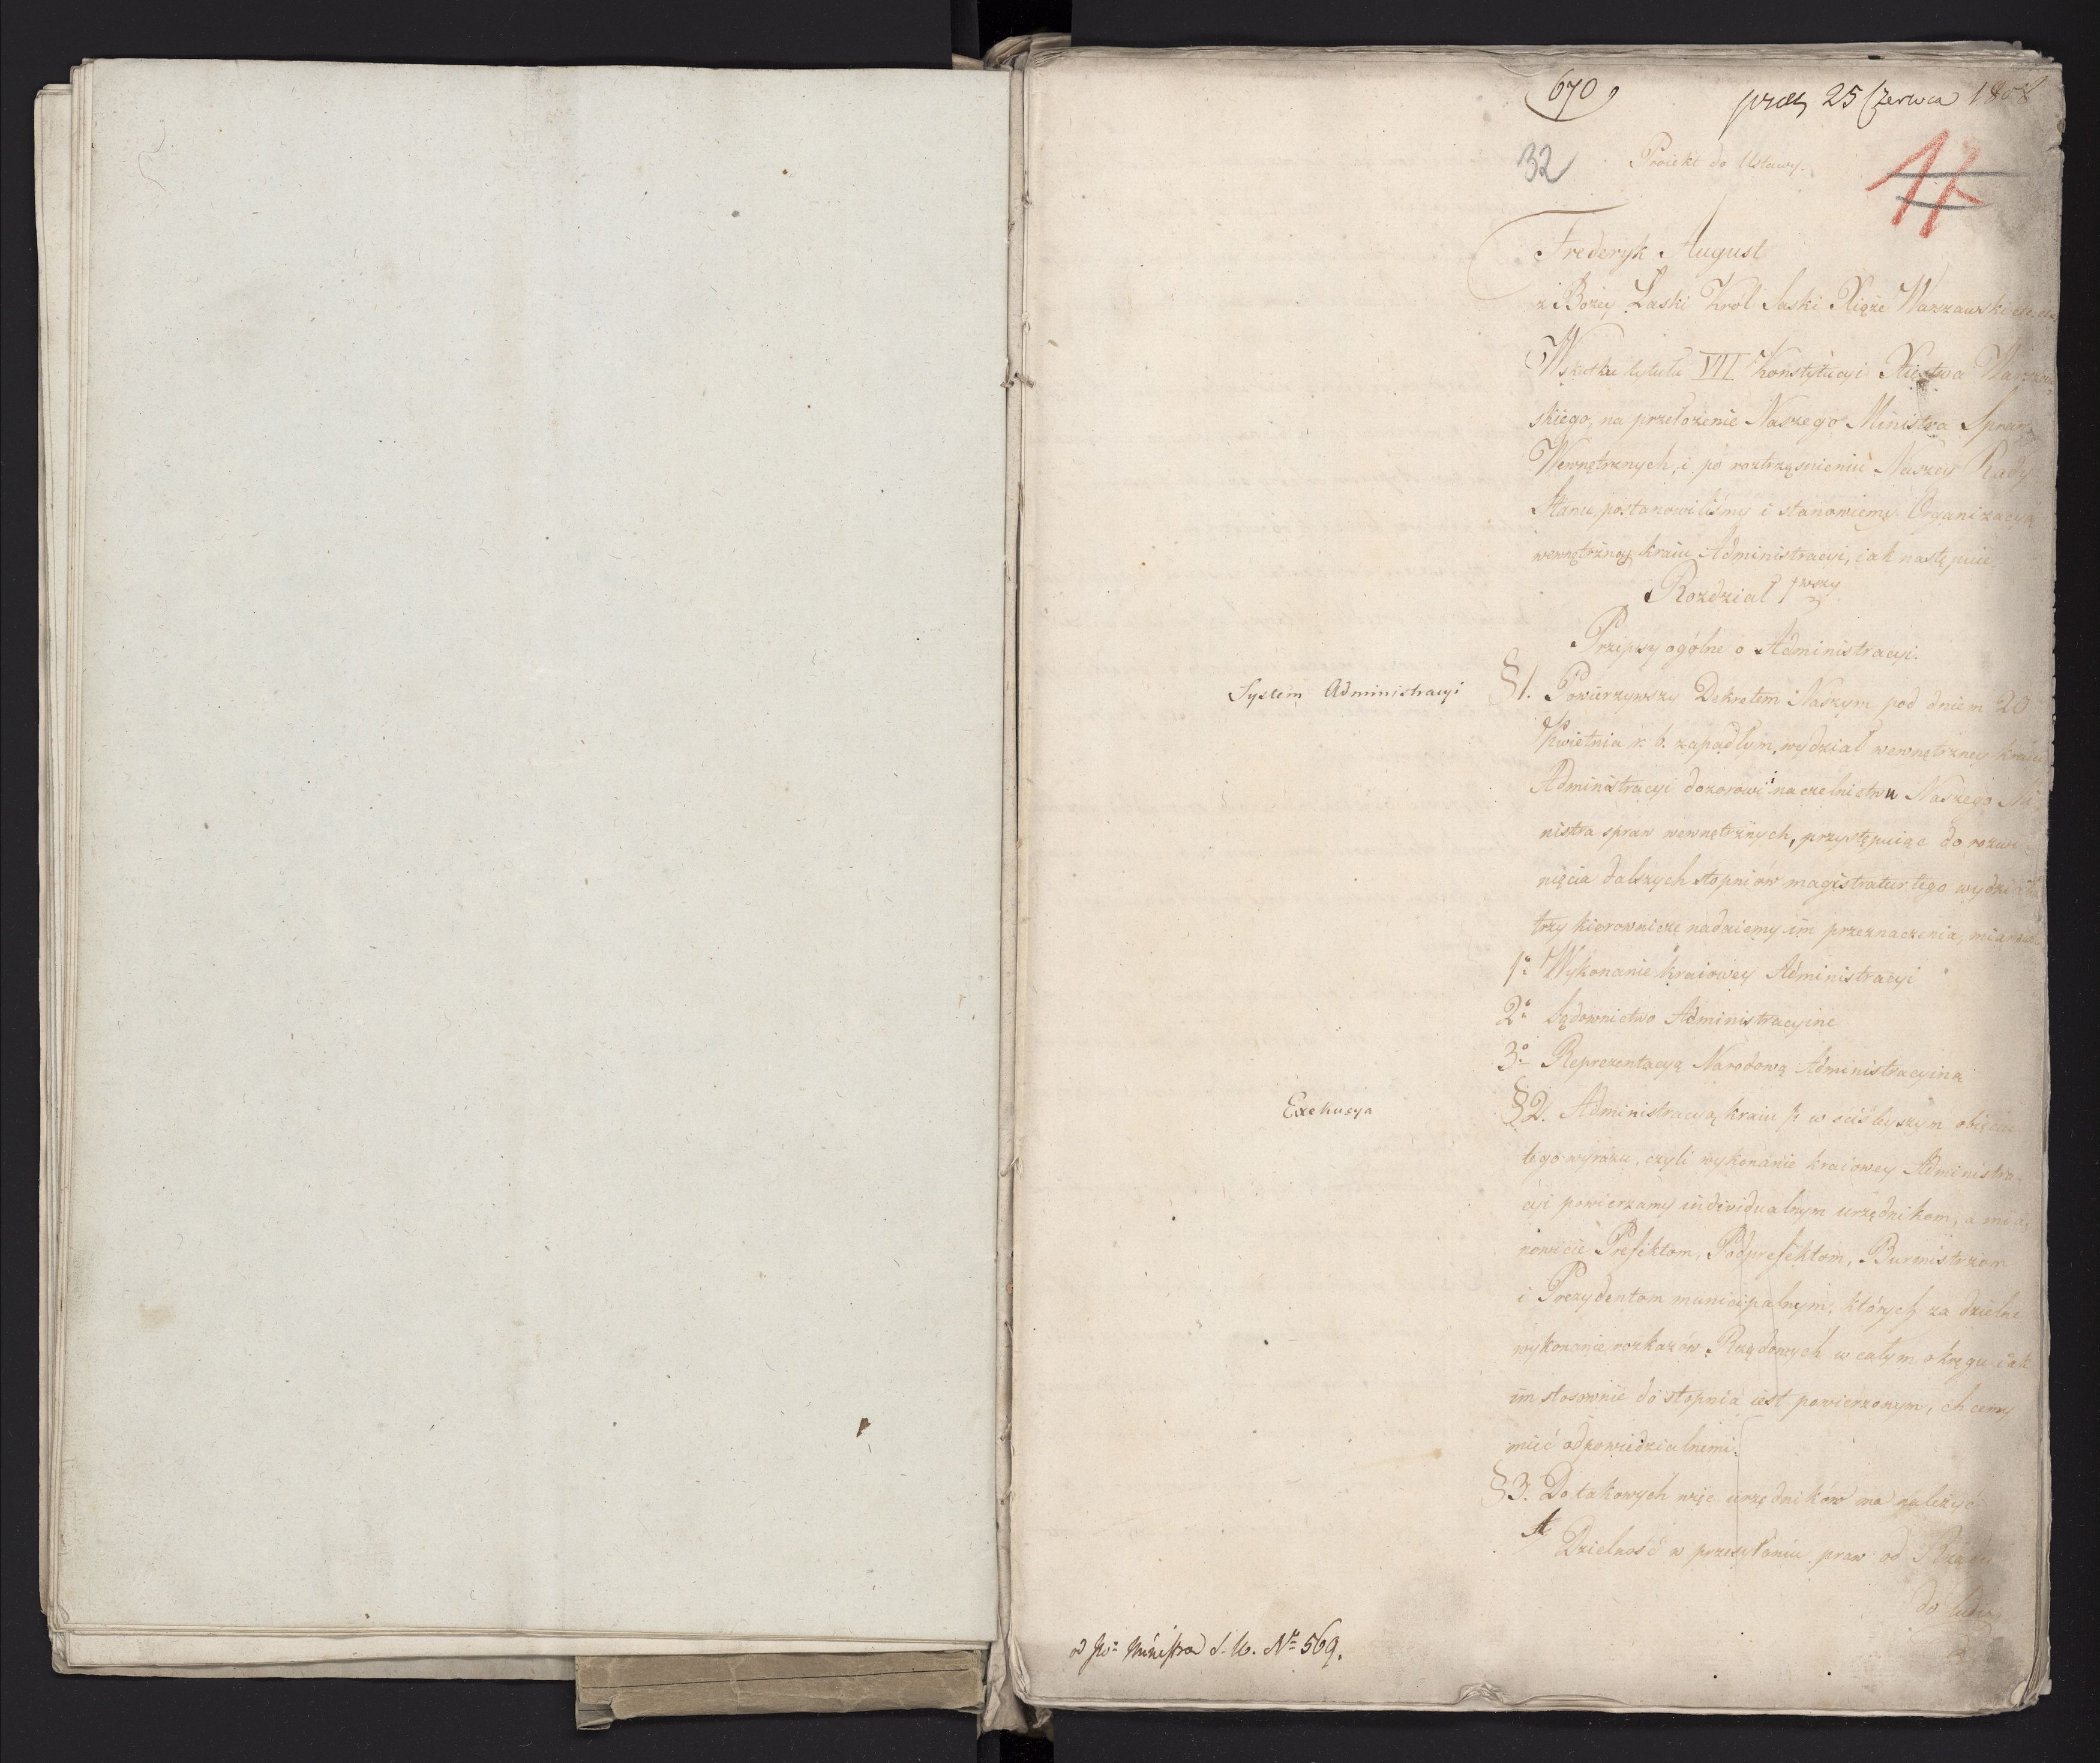 670
praes 25 Czerwca 1807
32
Proiekt do Ustawy.
17
Frederyk August
z Bożey Łaski Krol Saski Xiąże Warszawski etc. etc.
Wskutku tytułu VII Konstytucyi Xięstwa Warszaw
skiego, na przełożenie Naszego Ministra Spraw
Wewnętrznych, i po roztrząsnieniu Naszey Rady
Stanu, postanowiliśmy i stanowiemy Organizacyą
wewnętrzney kraiu Administracyi, iak następuie,
Rozdział 1wszy
Przepisy ogólne o Administracyi.
System Administracyi
§1. Powierzywszy Dekretem Naszym pod dniem 20
Kwietnia r. b. zapadłym, wydział wewnętrzney kraiu
Administracyi dozorowi i naczelnictwu Naszego Mi
nistra spraw wewnętrznych, przystępuiąc do rozwi
nięcia dalszych stopniów magistratur tego wydziału
trzy kierownicze nadaiemy im przeznaczenia, mianowicie
1o Wykonanie kraiowey Administracyi
2o Sądownictwo Administracyine
3o Reprezentacyą Narodową Administracyiną
Exekucya
§2. Administracyą kraiu w ściśleyszym obięciu
tego wyrazu, czyli wykonanie kraiowey Administra-
cyi powierzamy individualnym urzędnikom, a mia
nowicie Prefektom, Podprefektom, Burmistrzom
i Prezydentom municipalnym, których za dzielne
wykonanie rozkazów Rządowych w całym okręgu iak
im stosownie do stopnia iest powierzonym, chcemy
mieć odpowiedzialnemi.
§3. Do takowych więc urzędników ma należyć
A Dzielność w przesyłaniu praw od Rządu
do ludu
od Jw. Ministra S. W. No 569.